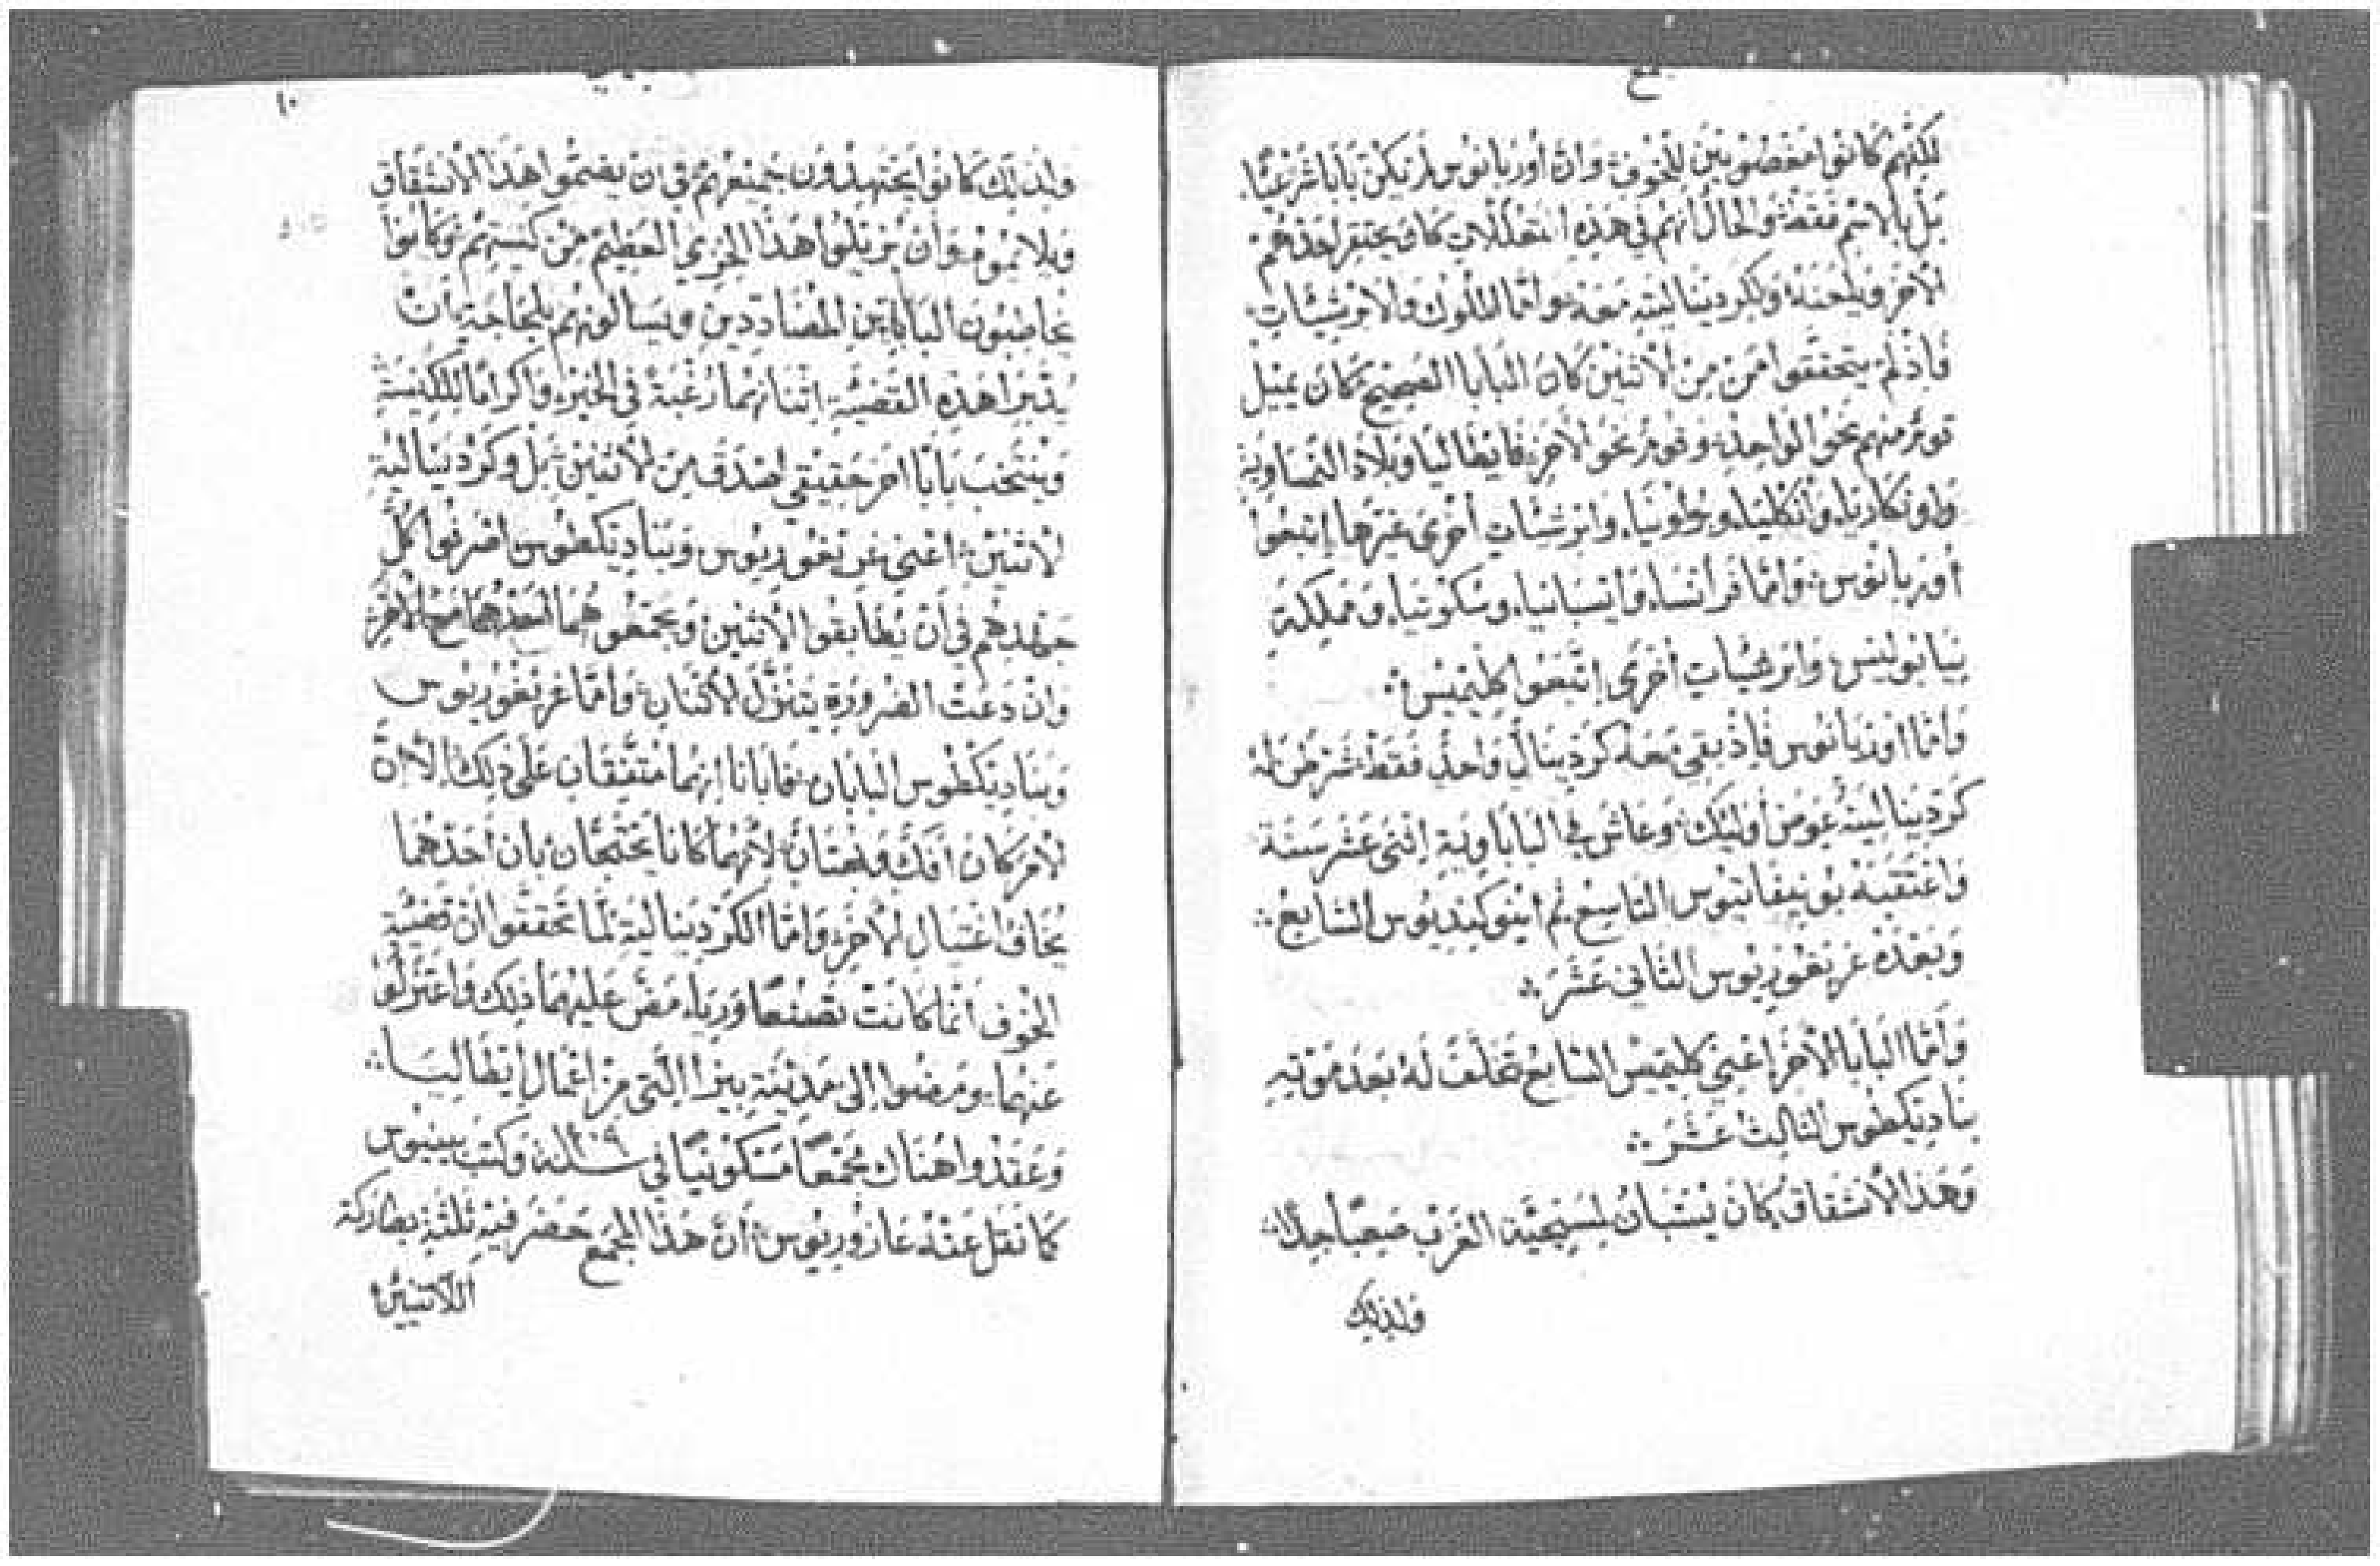 مع
لكنهم كانوا مغصوبين للخوف وان أوربانوس لم يكن بابا شرعيًا
بل بالاسم فقط والحال انهم في هذه كان يحتقر احدهم
الآخر ويلعنه وبكرديناليته معه واما الملوك والابرشيات
فاذ لم يتحققوا من من الاثنين كان البابا الصحيح كان يميل
قوم منهم نحو الواحد وقوم نحو الآخر فايطاليا وبلاد النمساوية
واونكاريا وانكليا وبولونيا وابرشيات أخرى غيرها اتبعوا
أوربانوس واما فرانسا وايسبانيا وسكوتيا ومملكة
نيابوليس وابرشيات أخرى اتبعوا كليميس
واما اوربانوس فاذ بقي معه كردينال واحد فقط شرطن له
كرديناليته عوض أوليك وعاش في الباباوية اثنى عشر سنة
واعتقبه بونيفاتيوس التاسع ثم اينوكينديوس السابع
وبعده غريغوريوس الثاني عشر
واما البابا الآخر اعني كليمس السابع تخلف له بعد موته
بناديكطوس الثالث عشر
وهذا الانشقاق كان يستبان لمسيحية الغرب صعبًا جدًا
ولذلك
١٠
ولذلك كانوا يجتهدون جميعهم في ان يضموا هذا الانشقاق
ويلايموه وأن يزيلوا هذا الخزي العظيم من كنيستهم وكانوا
يخاطبون البابايين المضاددين ويسالونهم بلجاجة ان
يدبرا هذه القضية اثنانهما رغبة في الخير واكرامًا للكنيسة
وينتخب بابا اخر حقيقي اصدق من الاثنين بل وكرديناليه
الاثنين اعني غريغوريوس وبناديكطوس اصرفوا كل
جهدهم في ان يطابقوا الاثنين ويجمعوهما احدهما مع الآخر
وان دعت الضرورة يتنزل الاثنان واما غريغوريوس
وبناديكطوس البابان فابانا انهما متفقان على ذلك إلا ان
الامر كان افك وبهتان لانهما كانا يحتجان بان احدهما
يخاف اغتيال الآخر واما الكرديناليه لما تحققوا ان قضية
الخوف انما كانت تصنعًا ورياء مض عليهما ذلك واعتزلوا
عنهما ومضوا إلى مدينة بيزا التي من اعمال إيطاليا
وعقدوا هناك مجمعًا مسكونيًا في سنة ١٤٠٩ وكتب بينيوس
كما نقل عنه غازوريوس أن هذا المجمع حضر فيه ثلثة بطاركة
اللاتنيين